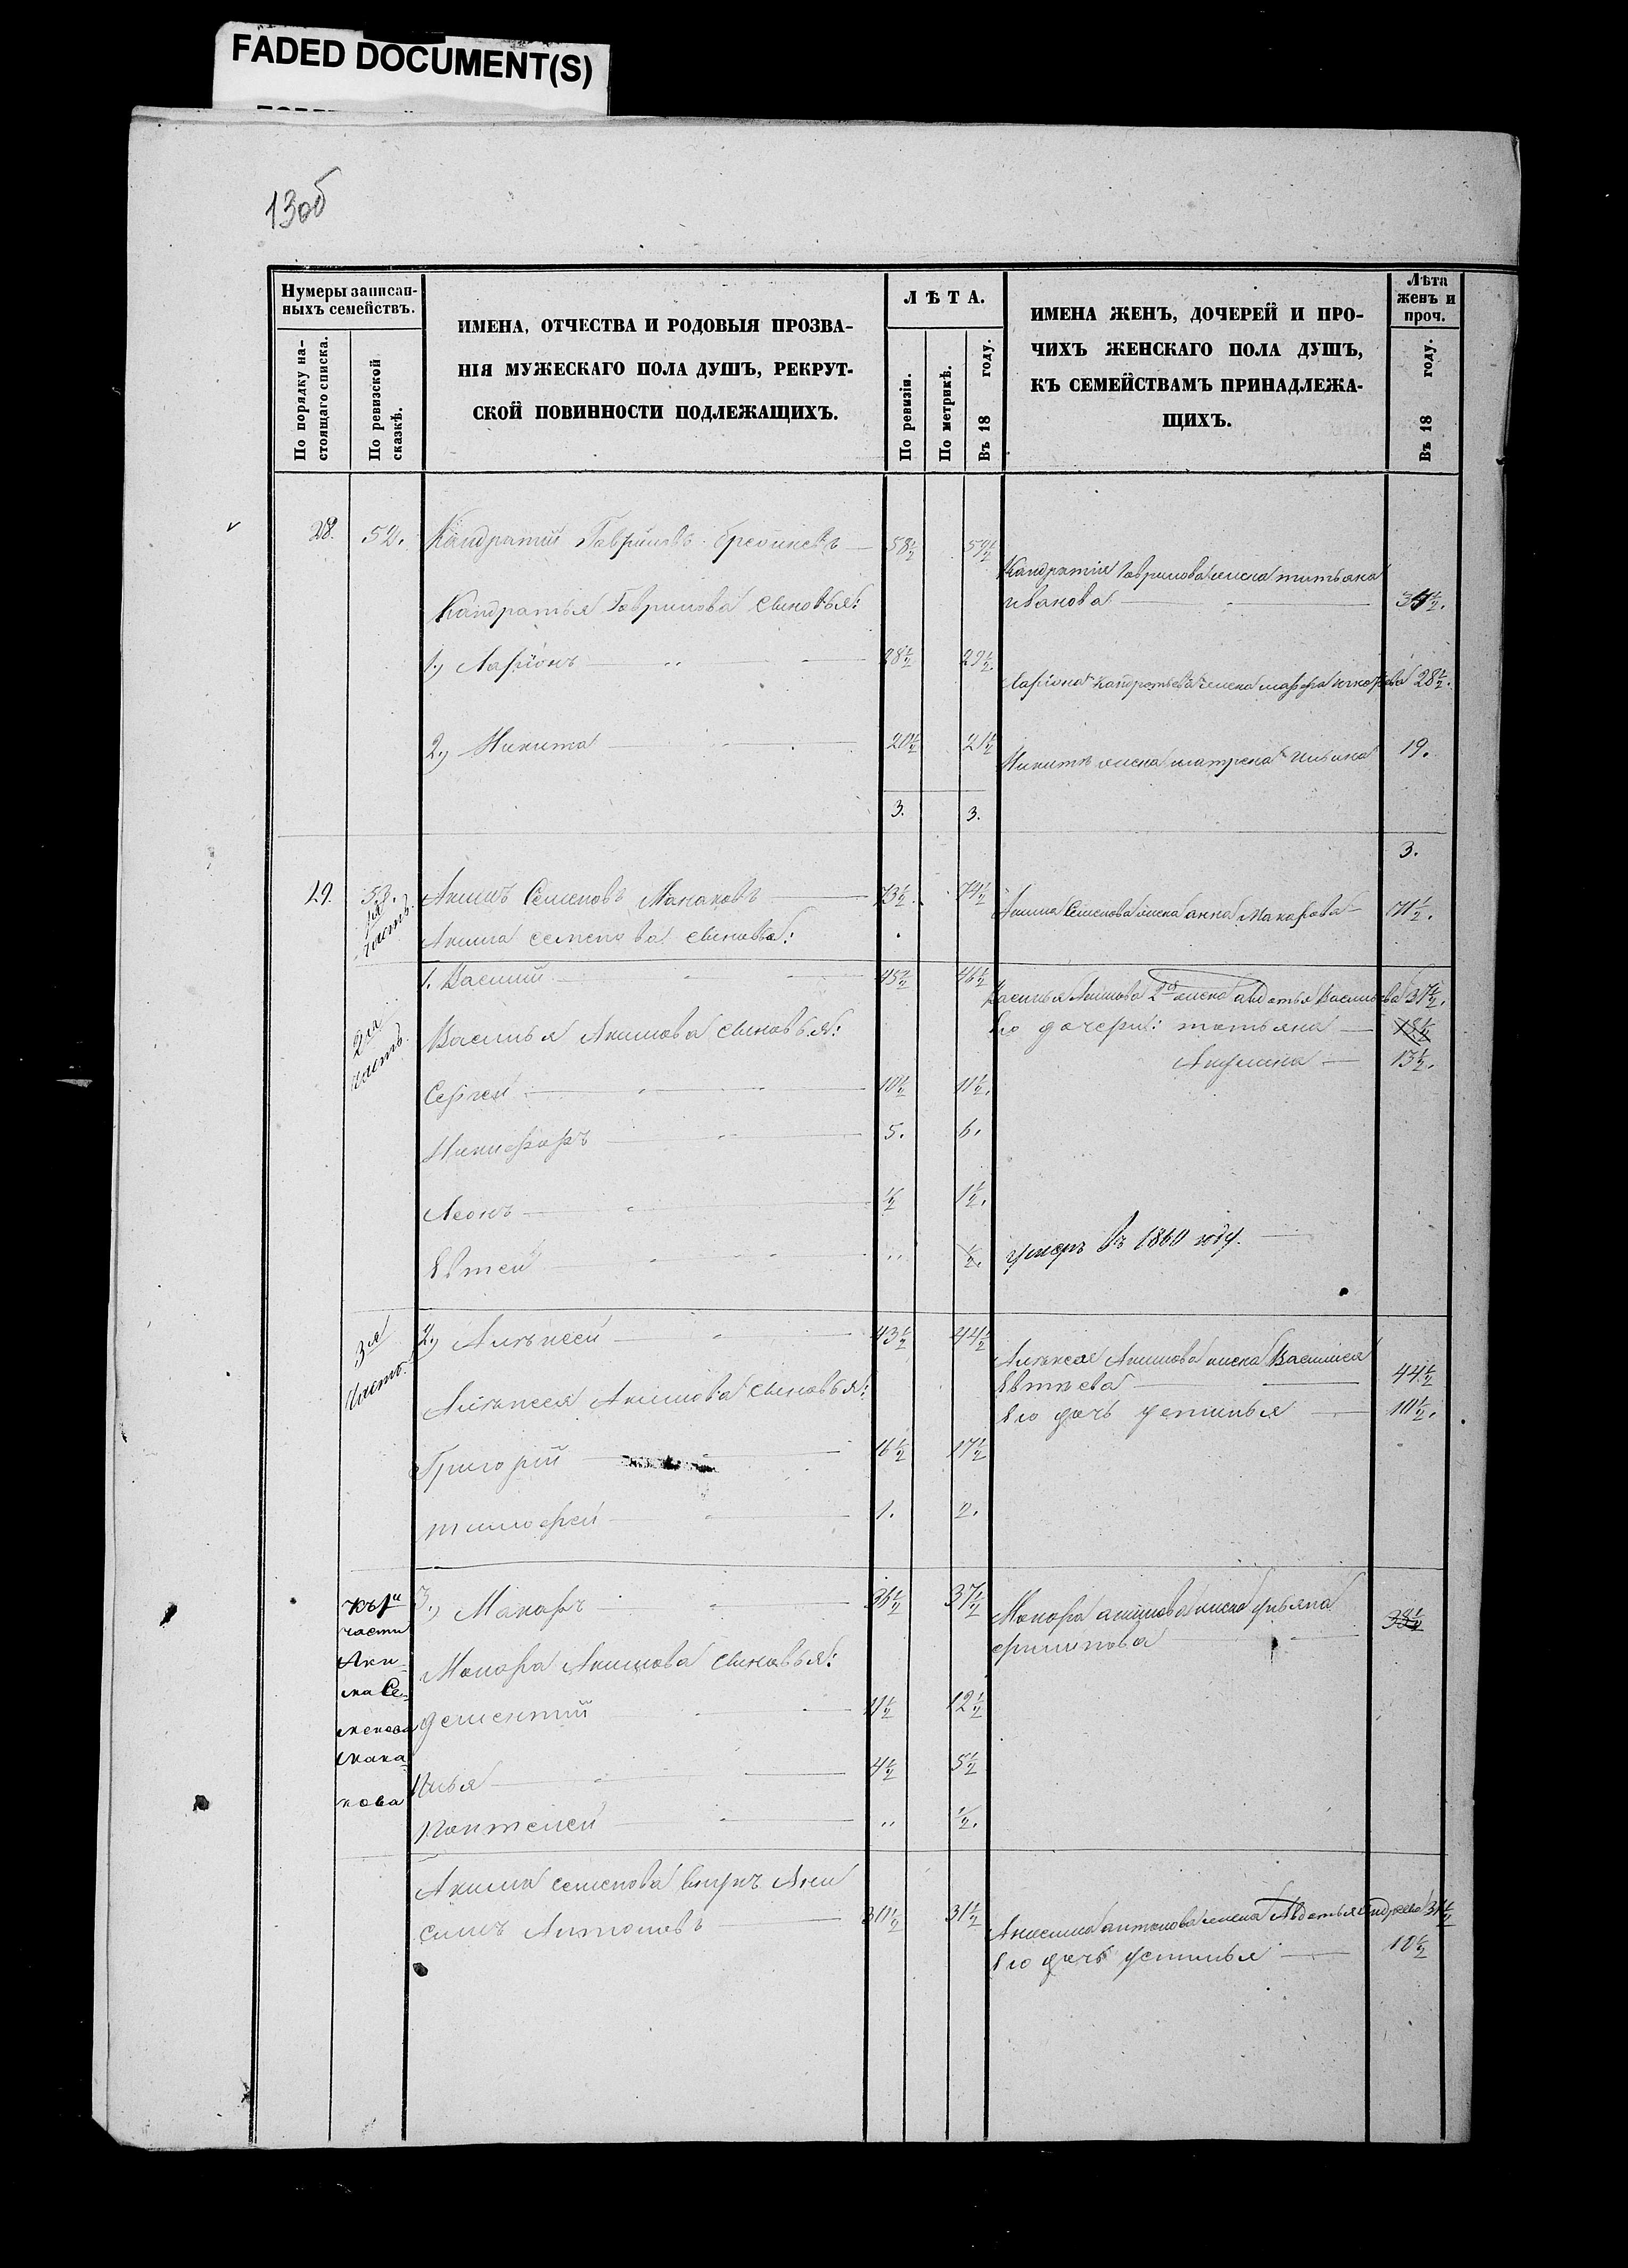 FADED DOCUMENT(S)
13об
Нумеры записан-
ныхъ семействъ.
По порядку на-
стоящаго списка.
По ревизской
сказкѣ.
ИМЕНА, ОТЧЕСТВА И РОДОВЫЯ ПРОЗВА-
НІЯ МУЖЕСКАГО ПОЛА ДУШЪ, РЕКРУТ-
СКОЙ ПОВИННОСТИ ПОДЛЕЖАЩИХЪ.
ЛѢТА.
По ревизіи.
По метрикѣ.
Въ 18 году.
ИМЕНА ЖЕНЪ, ДОЧЕРЕЙ И ПРО-
ЧИХЪ ЖЕНСКАГО ПОЛА ДУШЪ,
КЪ СЕМЕЙСТВАМЪ ПРИНАДЛЕЖА-
ЩИХЪ.
Лѣта
женъ и
проч.
Въ 18 году.
28. 52. Кандратий Гавриловъ 58½ 59½
Кандратія Гаврилова жена татьяна
Иванова
Кандратья Гаврилова сыновья:
1.) Ларіонъ 28½ 29½.
Ларіона Кандратьева жена 28½.
2.) Никита 20½ 21½
Никиты жена матрена Ильина 19.
3. 3.
3.
29. 53. Акимъ Семеновъ Манаковъ 73½. 74½
1я часть.
Акима Семенова жена анна Макарова 71½.
Акима семенова сыновья:
1. Василий 45½ 46½
Василья Акимова 2я жена авдотья Васильева 37½.
2ая часть.
Василья Акимова сыновья:
Его дочери: татьяна 18½
Акулина 13½.
Сергей 10½ 11½.
Никифоръ 5. 6.
Леонъ ½ 1½.
Евтей ,, ½. умеръ въ 1860 году.
3я часть.
2.) Алѣксей 43½ 44½
Алѣксея Акимова жена Василиса
Евтѣева 44½
Алѣксея Акимова сыновья:
Его дочь устинья 10½.
Григорій 16½ 17½
тимофей 1. 2.
Къ 1й
части
Аки-
ма Се-
менова
Мана-
кова
3.) Макаръ 36½ 37½
Макара акимова жена ульяна
филипова 38½
Макара Акимова сыновья:
дементий 11½ 12½
Илья 4½ 5½
Пантелей ,, ½.
Акима семенова внукъ Ани
симъ Антоновъ 30½ 31½
Анисима антонова жена Авдотья Андреева 31½
Его дочь Устинья 10½